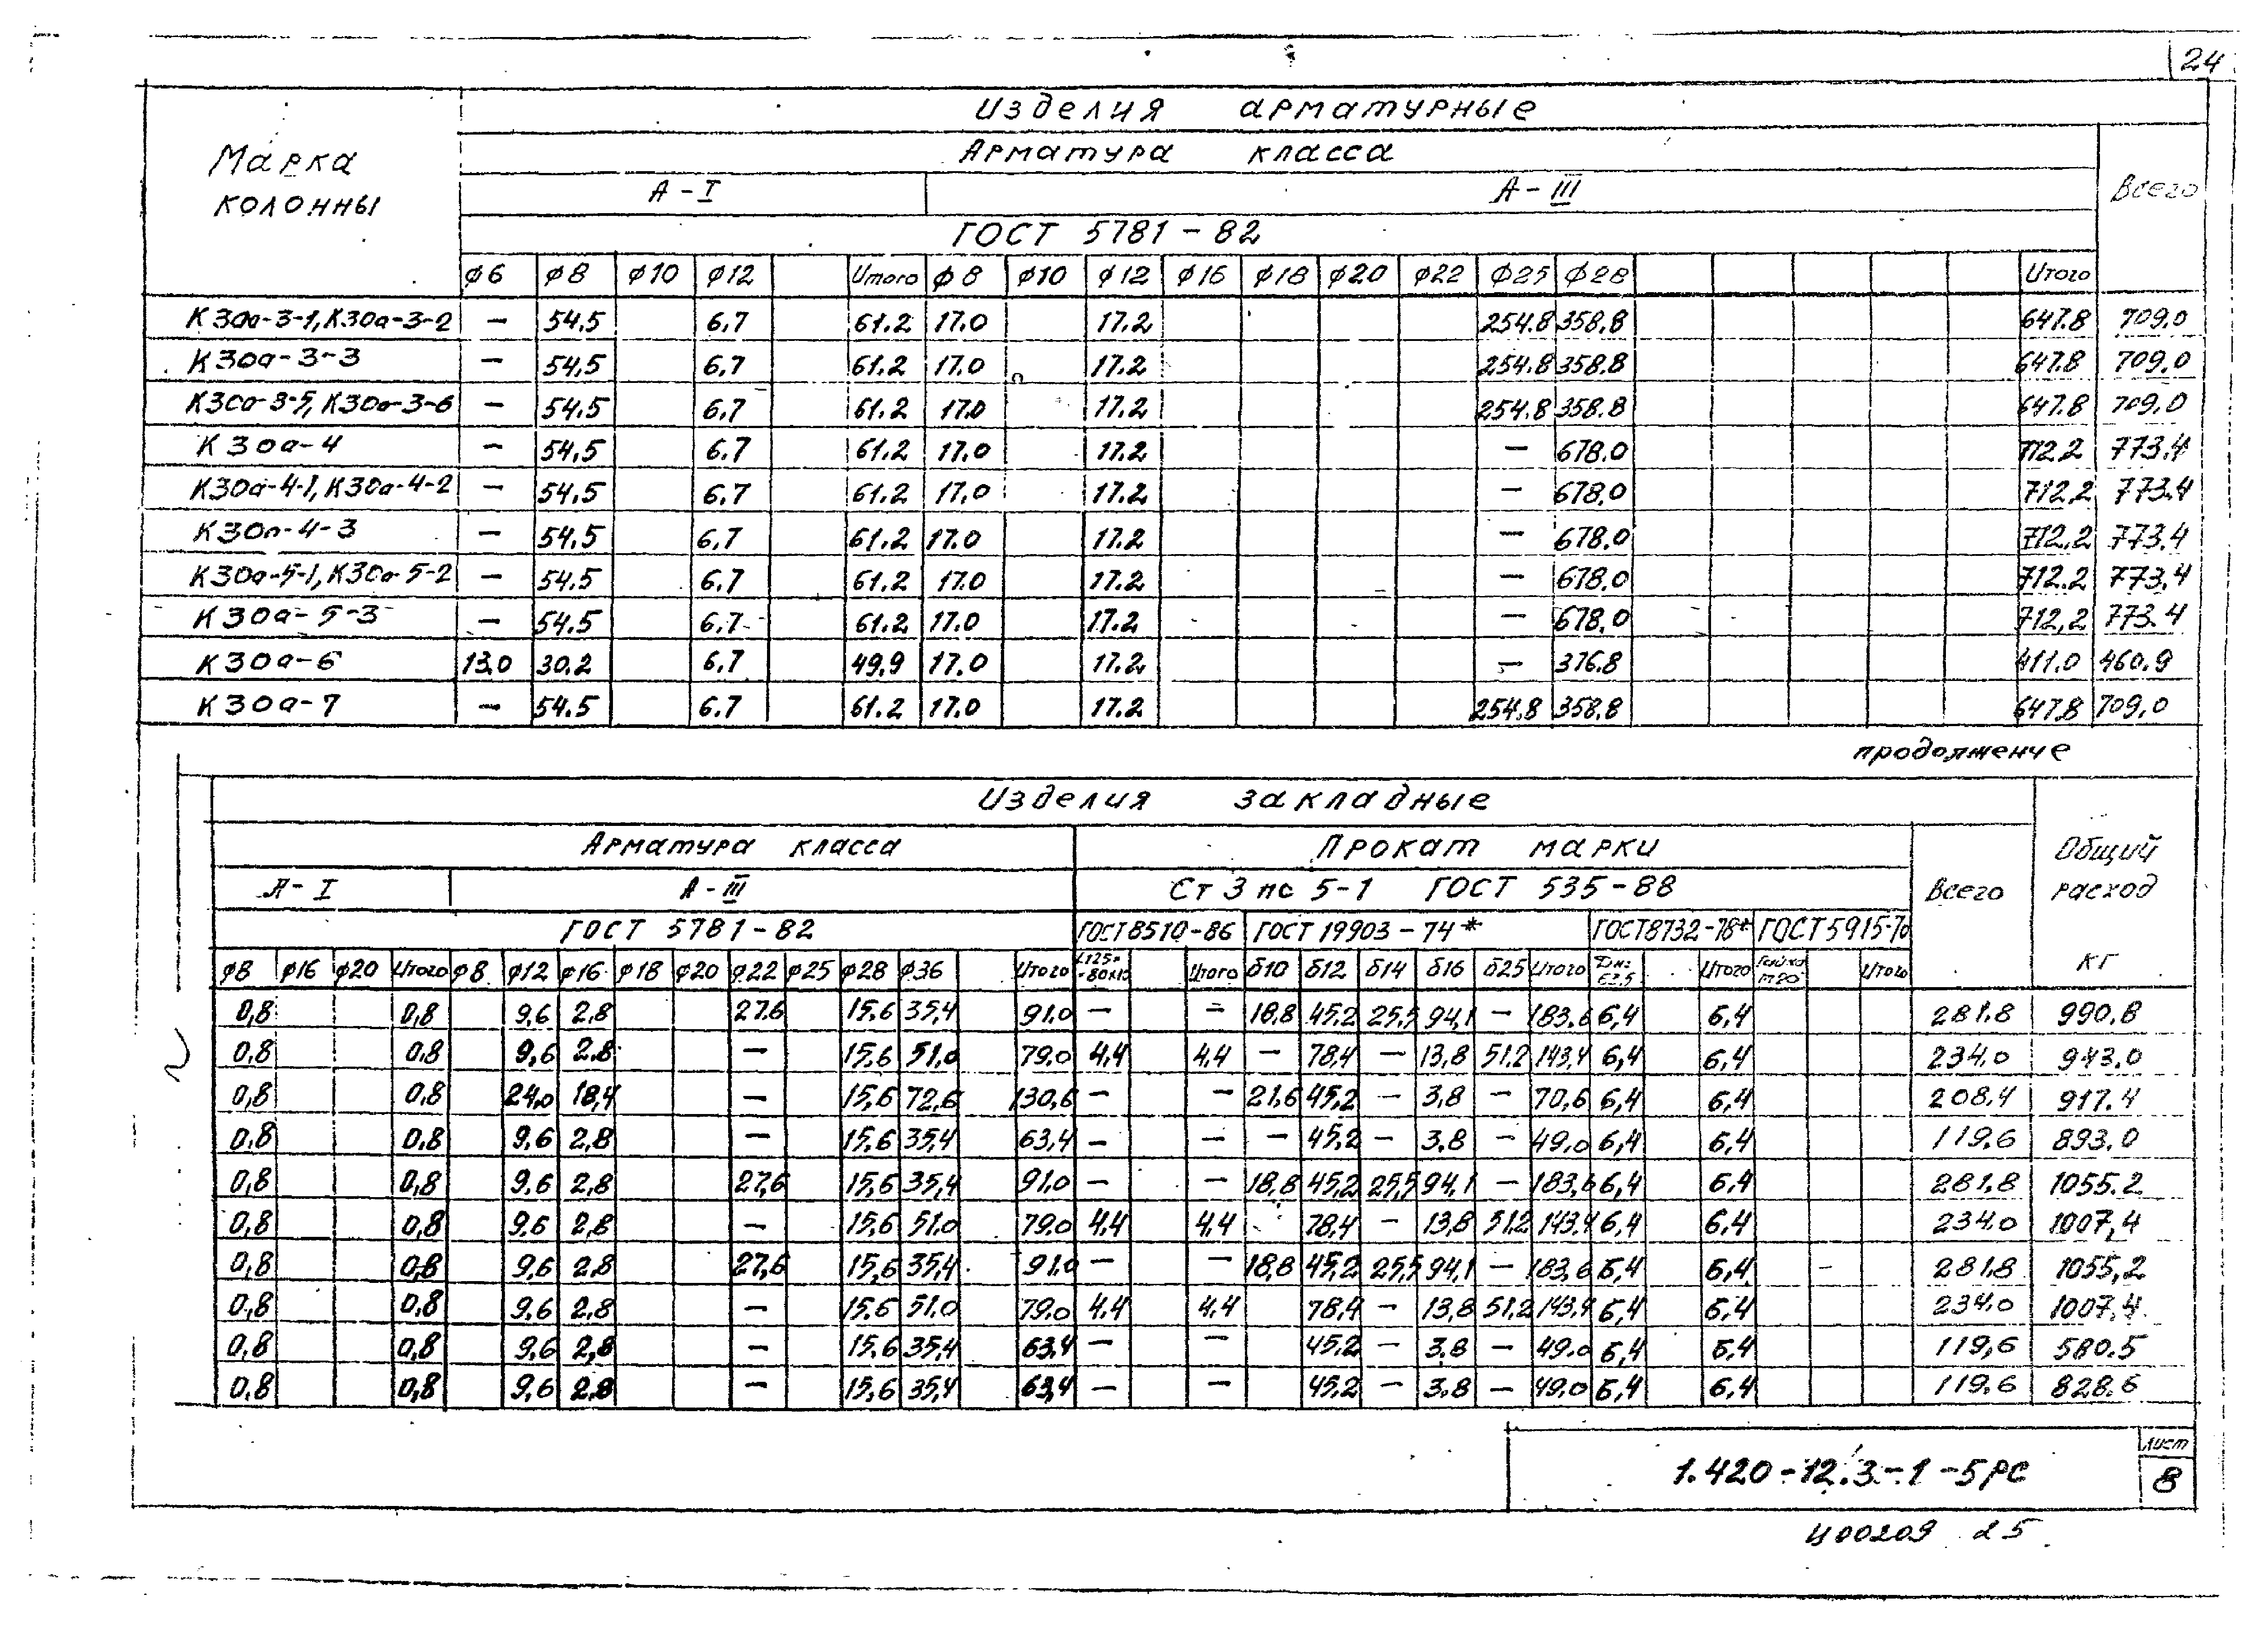 24
Изделия арматурные
Марка колонны
Арматура класса
Всего
А-I А-III
ГОСТ 5781-82
ф6 ф8 ф10 ф12 Итого ф8 ф10 ф12 ф16 ф18 ф20 ф22 ф25 ф28 Итого
К30а-3-1, К30а-3-2 — 54.5 6.7 61.2 17.0 17.2 254.8 358.8 647.8 709.0
К30а-3-3 — 54.5 6.7 61.2 17.0 17.2 254.8 358.8 647.8 709.0
К30а-3-5, К30а-3-6 — 54.5 6.7 61.2 17.0 17.2 254.8 358.8 647.8 709.0
К30а-4 — 54.5 6.7 61.2 17.0 17.2 — 678.0 712.2 773.4
К30а-4-1, К30а-4-2 — 54.5 6.7 61.2 17.0 17.2 — 678.0 712.2 773.4
К30а-4-3 — 54.5 6.7 61.2 17.0 17.2 — 678.0 712.2 773.4
К30а-5-1, К30а-5-2 — 54.5 6.7 61.2 17.0 17.2 — 678.0 712.2 773.4
К30а-5-3 — 54.5 6.7 61.2 17.0 17.2 — 678.0 712.2 773.4
К30а-6 13.0 30.2 6.7 49.9 17.0 17.2 — 376.8 411.0 460.9
К30а-7 — 54.5 6.7 61.2 17.0 17.2 254.8 358.8 647.8 709.0
продолжение
Изделия закладные
Арматура класса Прокат марки
А-I А-III Ст 3 пс 5-1 ГОСТ 535-88 Всего Общий расход кг
ГОСТ 5781-82 ГОСТ 8510-86 ГОСТ 19903-74* ГОСТ 8732-78* ГОСТ 5915-70
ф8 ф16 ф20 Итого ф8 ф12 ф16 ф18 ф20 ф22 ф25 ф28 ф36 Итого Итого δ10 δ12 δ14 δ16 δ25 Итого Итого Гайка М20 Итого
0,8 0,8 9,6 2,8 27.6 15,6 35,4 91.0 — — 18,8 45,2 25,5 94,1 — 183,6 6,4 6,4 281.8 990.8
0,8 0,8 9,6 2,8 — 15,6 51.0 79.0 4,4 4,4 — 78,4 — 13,8 51.2 143,4 6,4 6,4 234.0 943.0
0,8 0,8 24,0 18,4 — 15,6 72,6 130,6 — — 21,6 45,2 — 3,8 — 70,6 6,4 6,4 208,4 917.4
0,8 0,8 9,6 2,8 — 15,6 35,4 63,4 — — — 45,2 — 3,8 — 49,0 6,4 6,4 119.6 893.0
0,8 0,8 9,6 2,8 27,6 15,6 35,4 91.0 — — 18,8 45,2 25,5 94,1 — 183,6 6,4 6,4 281.8 1055.2
0,8 0,8 9,6 2,8 — 15,6 51.0 79.0 4,4 4,4 78,4 — 13,8 51.2 143.4 6,4 6,4 234.0 1007,4
0,8 0,8 9,6 2,8 27,6 15,6 35,4 91.0 — — 18,8 45,2 25,5 94,1 — 183,6 6,4 6,4 281.8 1055,2
0,8 0,8 9,6 2,8 — 15,6 51.0 79.0 4,4 4,4 78,4 — 13,8 51,2 143,4 6,4 6,4 234.0 1007.4
0,8 0,8 9,6 2,8 — 15,6 35,4 63,4 — — 45,2 — 3,8 — 49.0 6,4 6,4 119,6 580.5
0,8 0,8 9,6 2,8 — 15,6 35,4 63,4 — — 45.2 — 3.8 — 49,0 6,4 6,4 119.6 828.6
1.420-12.3-1-5РС
Лист
8
Ц00209 25